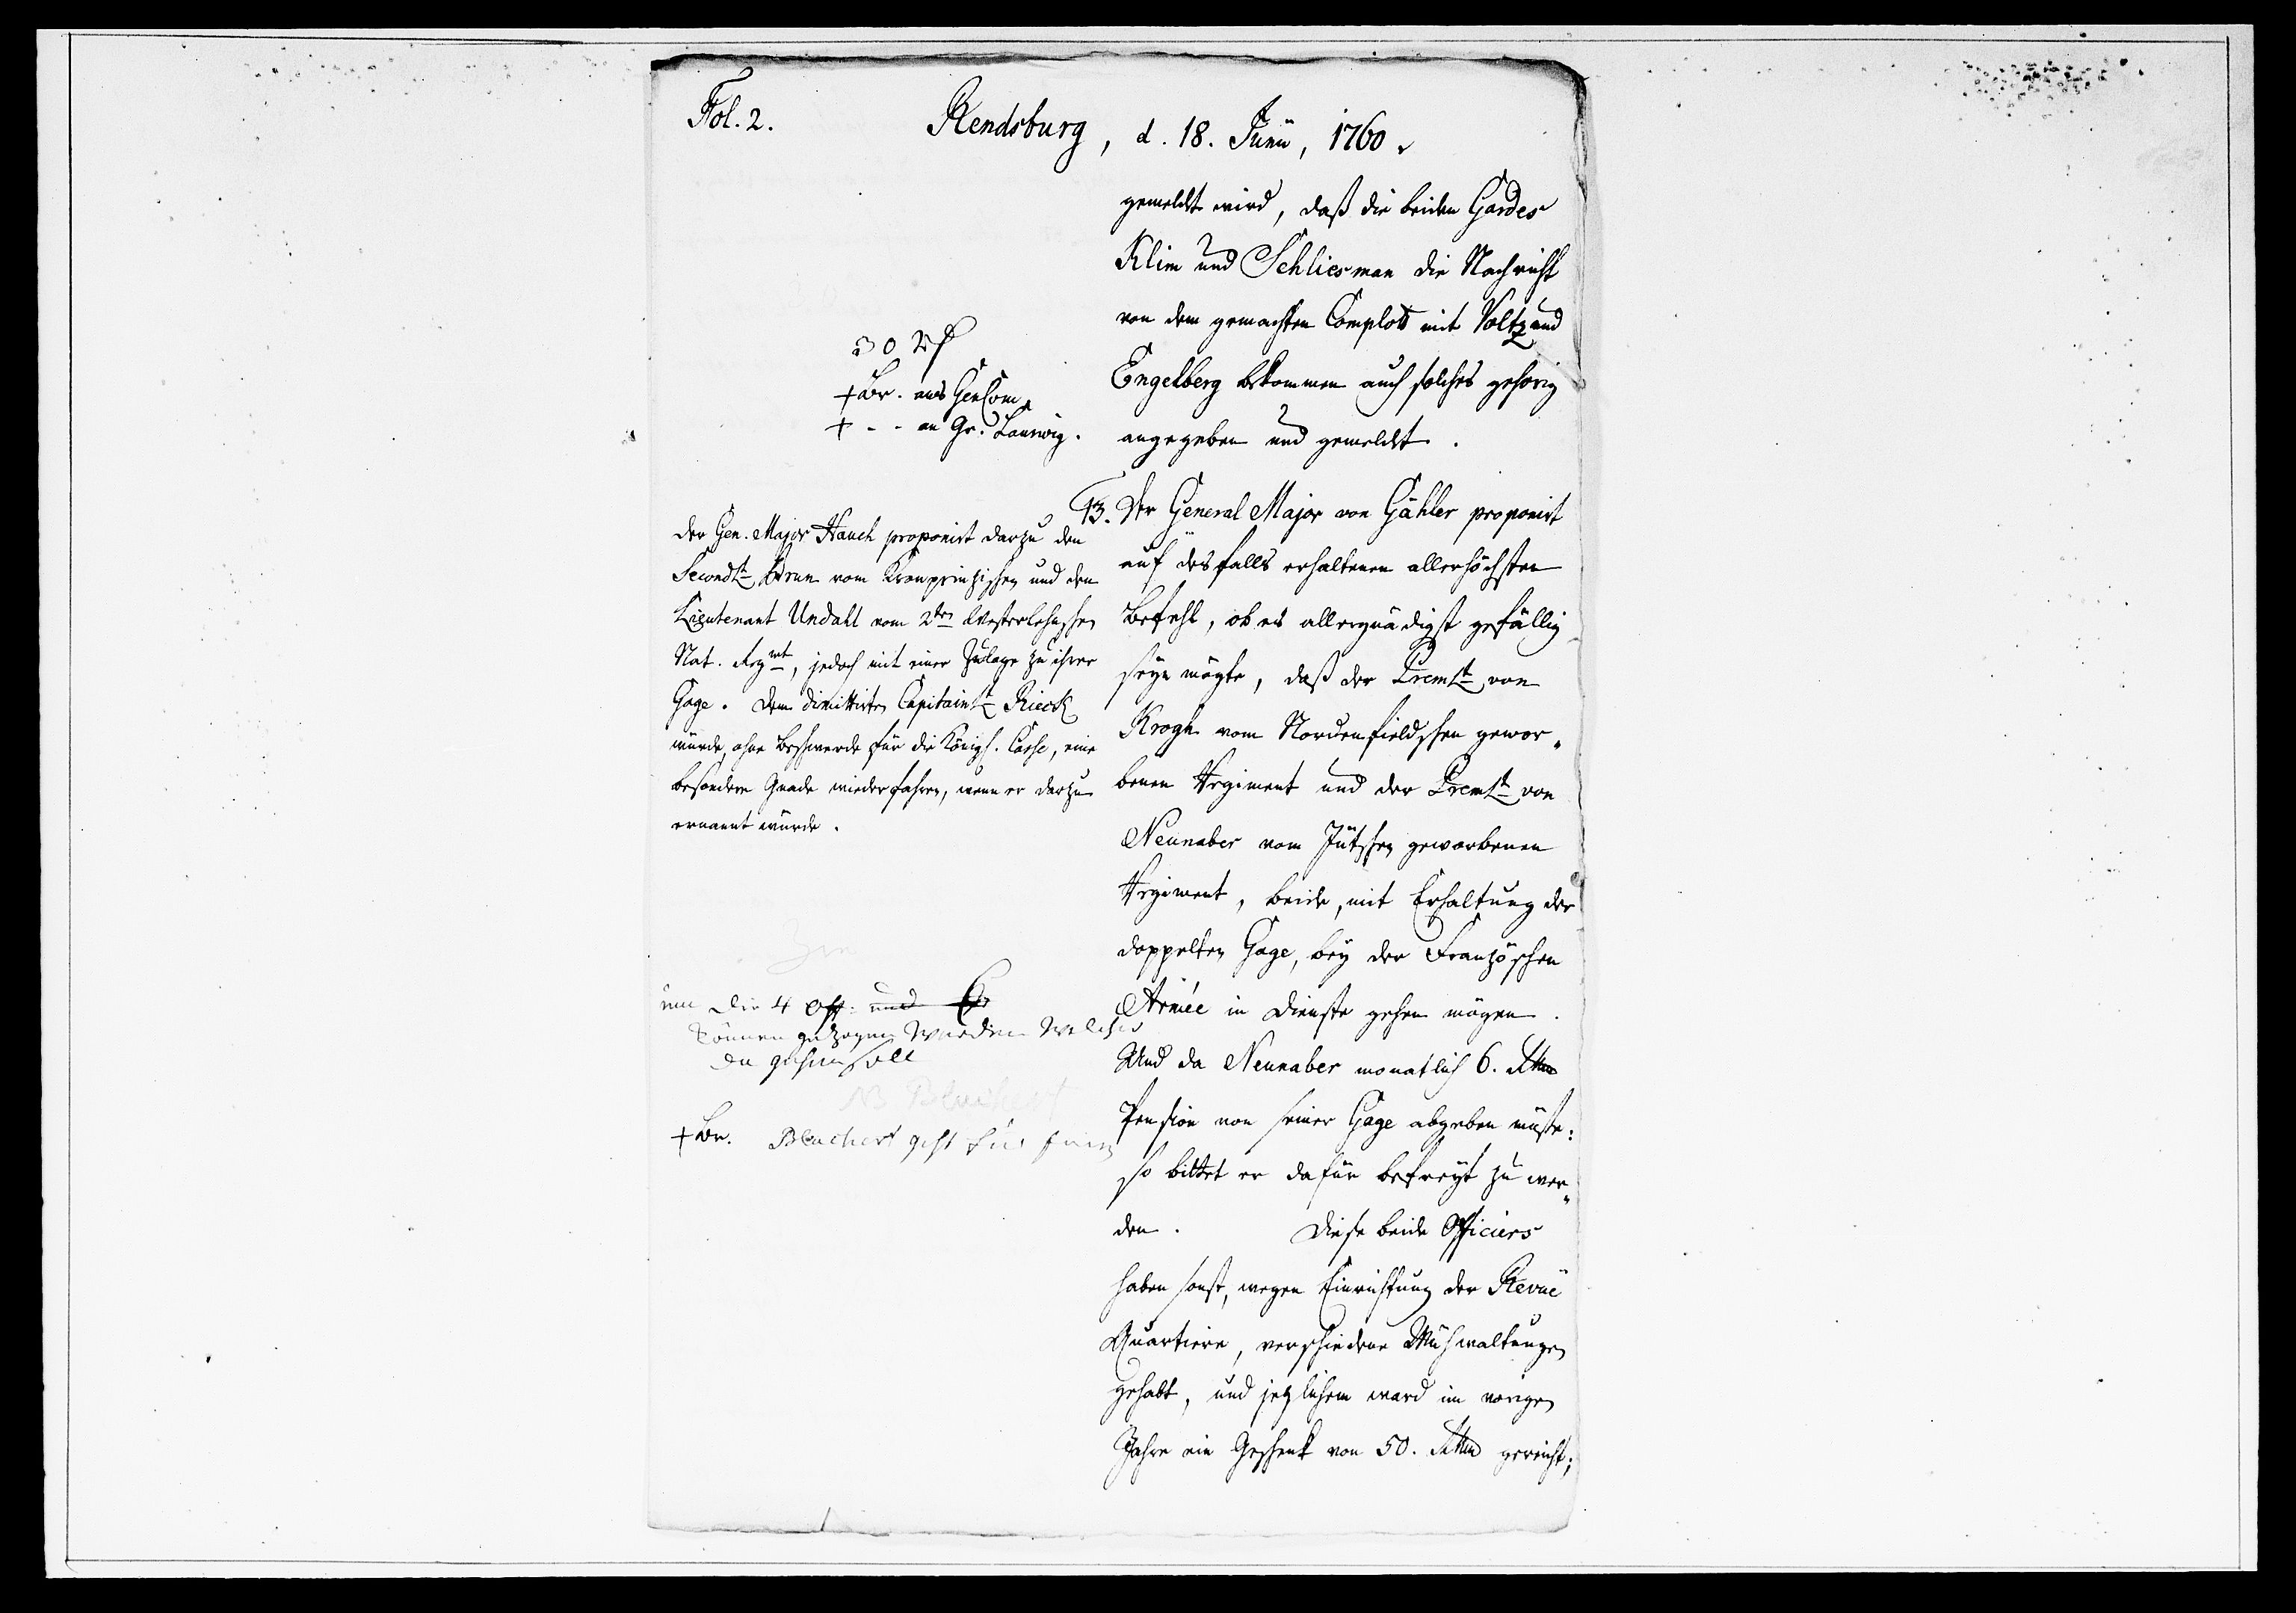 Fol. 2.
Rendsburg, d. 18. Junii, 1760.
gemeldet wird, daß die beiden Gardes
Klim und Schliesman die Nachricht
von dem gemachten Complott mit Voltz und
Engelberg bekommen auch solches gehorig
angegeben und gemeldet.
30 Rf
+ Br. ans GenCom.
+ - - an Gr. Laurwig.
13. Der General Major von Gähler proponirt
auf desfalls erhaltenen allerhöchsten
Befehl, ob es allergnädigst gefällig
seyn mögte, daß der Premlt von
Krogh vom Nordenfieldschen gewor-
benen Regiment und der Premlt von
Neunaber vom Jütschen geworbenen
Regiment, beide, mit Erhaltung der
doppelten Gage, bey der Französchen
Armée in Dienste gehen mögen.
Und da Neunaber monatlich 6. Rthlr
Pension von seiner Gage abgeben müste:
so bittet er dafür befreyt zu wer-
den. Diese beide Officiers
haben sonst, wegen Einrichtung der Revüe
Quartiere, verschiedene Mühwaltungen
gehabt, und jetzlichem ward im vorigen
Jahre ein Geschenk von 50. Rthlr gereicht;
Der Gen. Major Hauch proponirt darzu den
Secondlt Brun vom Kronprinzischen und den
Lieutenant Undahl vom 2ten Westerlehnschen
Nat. Regmt, jedoch mit einer Zulage zu ihrer
Gage. Dem dimittirten Capitainlt Rieck
würde, ohne Beschwerde für die Königl. Casse, eine
besondere Gnade wiederfahren, wenn er darzu
ernannt würde.
um die 4 Off: und
können gezogen werden welcher
da gehen soll
NB Bluchert
+ Br. Bluchert geht für